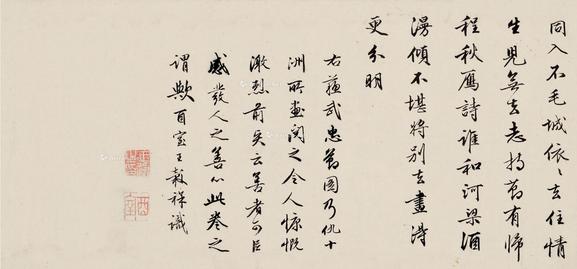 同入不毛城依〻去住情
生兒無去志持節有歸
程秋雁詩誰和河梁酒
漫傾不堪將別去畫得
更分明
右蘇武忠節圖乃仇十
洲所畫閱之令人慷慨
激烈前矣云善者可以
感發人之善心此卷之
謂歟酉室王穀祥識